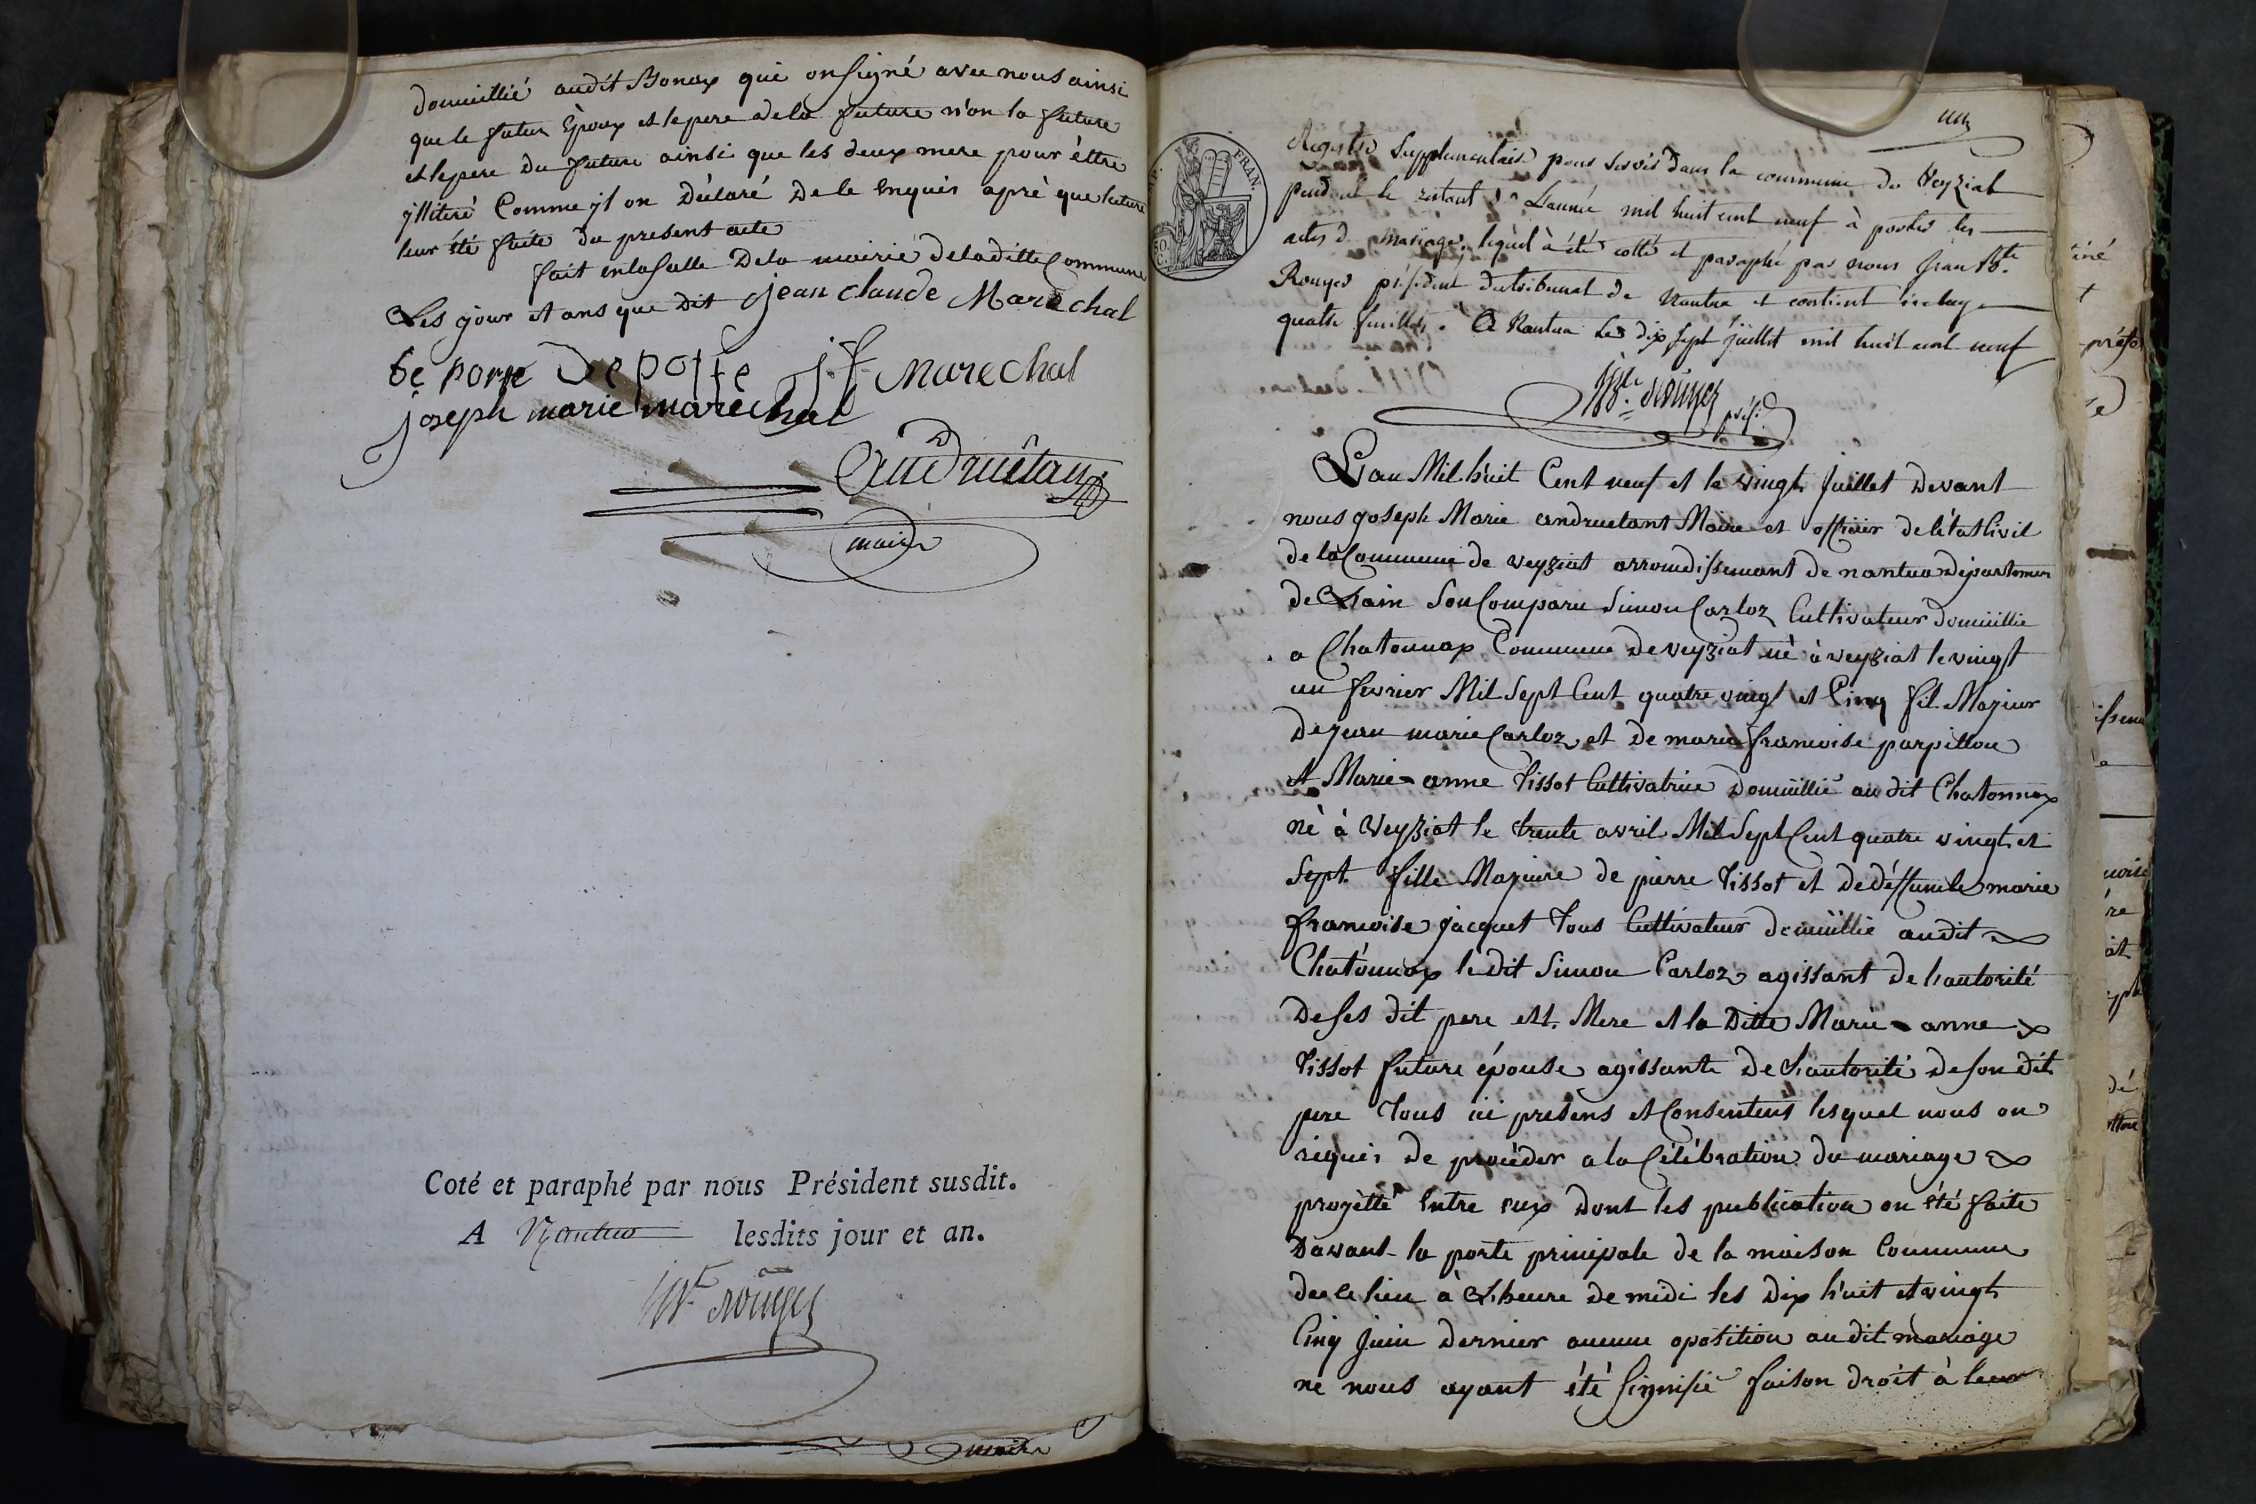 domicillié audit Bonax qui on signé avec nous ainsi
que le futur Époux et le pere de la future n'on la future
et le pere du future ainsi que les deux mere pour éttre
yllitéré Comme yl on Déclaré De le Enquis aprè que lecture
leur été faite du present acte
fait en la salle De la mairie de la ditte Commune
Les jour et ans que dit jean claude Marechal
De porte j f marechal
joseph marie marechal
Andruétan
maire
Coté et paraphé par nous Président susdit.
A Nantua lesdits jour et an.
Rouyer
maire
un
Registre Supplementaire pour servir dans la commune de Veyziat
pendant le restant de L'année mil huit cent neuf à porter les
actes de mariage, lequel à été cotté et paraphé par nous Jean Bte
Rouyer président du tribunal de Nantua et contient
quatre feuillets. A Nantua Le dix sept juillet mil huit cent neuf
Rouyer prést
FRAN.
50. C.
L'an Mil huit Cent neuf et le vingt Juillet Devant
nous joseph Marie andruetant Maire et officier de létat Civil
de la Commune de veyziat arrondissemant de nantua Département
de L'ain Son Comparu Simon Carloz Cultivateur domicillie
a Chatonnax Commune de veyziat né à veyziat le vingt
un fevrier Mil Sept Cent quatre vingt et Cinq fil Majeur
De jean marie Carloz et de marie francoise parpillon
et Marie-anne Tissot Cultivatrice Domicillié au dit Chatonnax
né à Veyziat le trente avril Mil Sept Cent quatre vingt et
Sept fille Majeure de pierre Tissot et de déffunte marie
francoise jacquet Tous Cultivateur domicillié audit
Chatonnax le dit Simon Carloz agissant de L'autorité
De ses dit pere ett Mere et la Ditte Marie-anne
Tissot future épouse agissante de L'autorité de son dit
pere Tous ici présens et Consentens lesquel nous on
réquis de procéder a la Célébration du mariage
projetté Entre eux dont les publication on été faite
Davant la porte principale de la maison Commune
de ce lieu à L'heure de midi les Dix huit et vingt
Cinq Juin dernier aucune oposition au dit mariage
ne nous ayant été signifié faison droit à leur